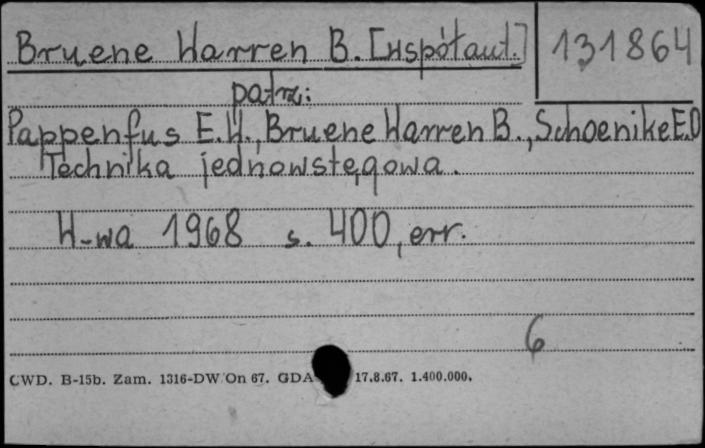 Bruene Warren B. [Współaut.]
131864
patrz:
Pappenfus E.W., Bruene Warren B., Schoenike E.O
Technika jednowstęgowa.
W-wa 1968 s. 400, err.
6
CWD. B-15b. Zam. 1316-DW/On 67. GDA 17.8.67. 1.400.000.